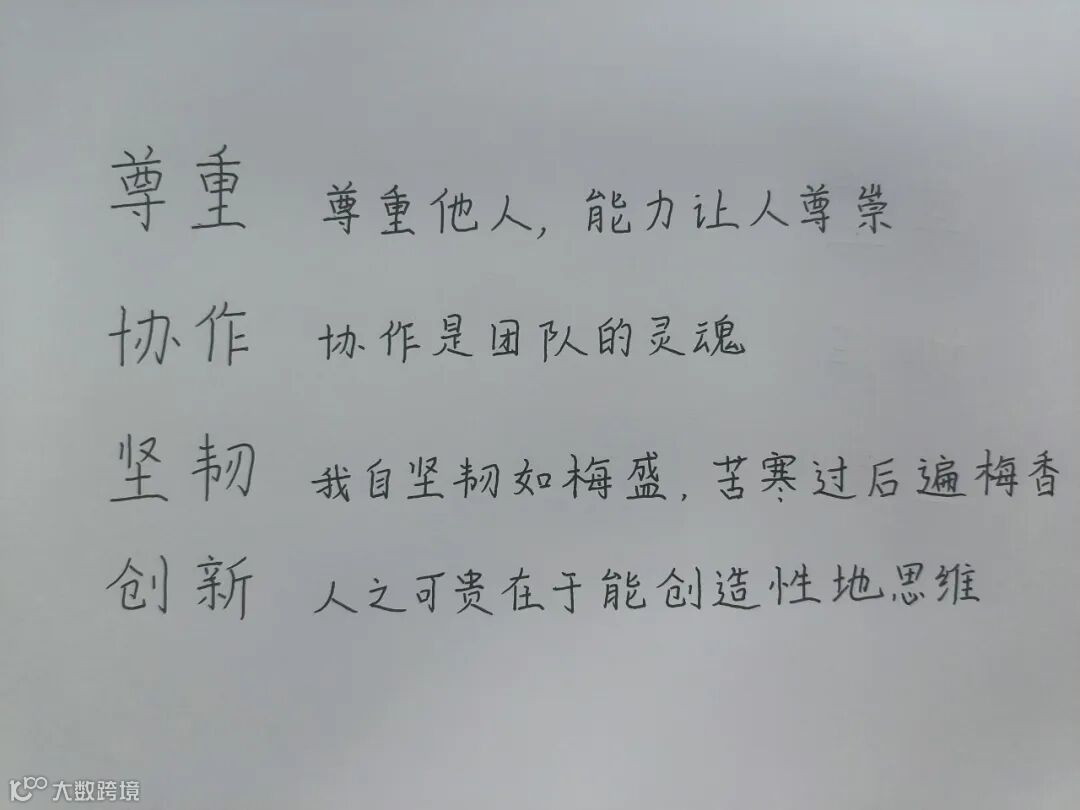 尊重 尊重他人，能力让人尊崇
协作 协作是团队的灵魂
坚韧 我自坚韧如梅盛，苦寒过后遍梅香
创新 人之可贵在于能创造性地思维
大数跨境